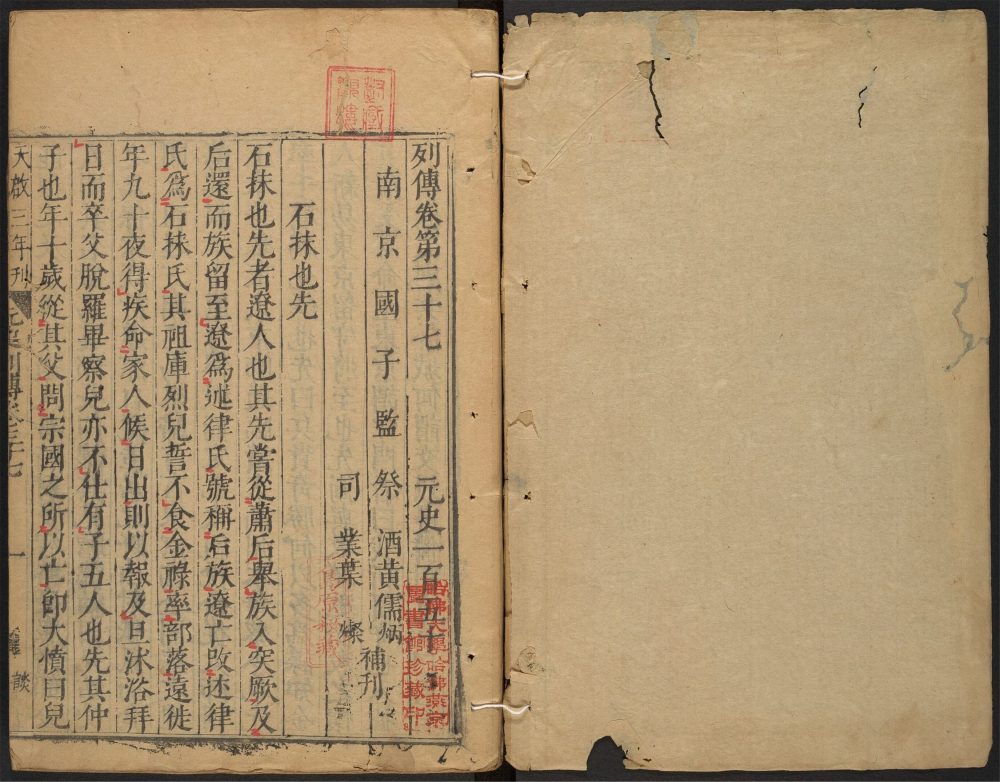 列傳卷第三十七 元史一百五十
南京國子監祭酒黃儒炳
司業葉燦補刊
石抹也先
石抹也先者遼人也其先嘗從蕭后舉族入突厥及
后還而族留至遼爲述律氏號稱后族遼亡改述律
氏爲石抹氏其祖庫烈兒誓不食金祿率部落遠徙
年九十夜得疾命家人候日出則以報及旦沐浴拜
日而卒父脫羅畢察兒亦不仕有子五人也先其仲
子也年十歲從其父問宗國之所以亡卽大憤曰兒
天啟三年刊 元史列傳卷三十七 一
哈佛大學哈佛燕京
圖書館珍藏印